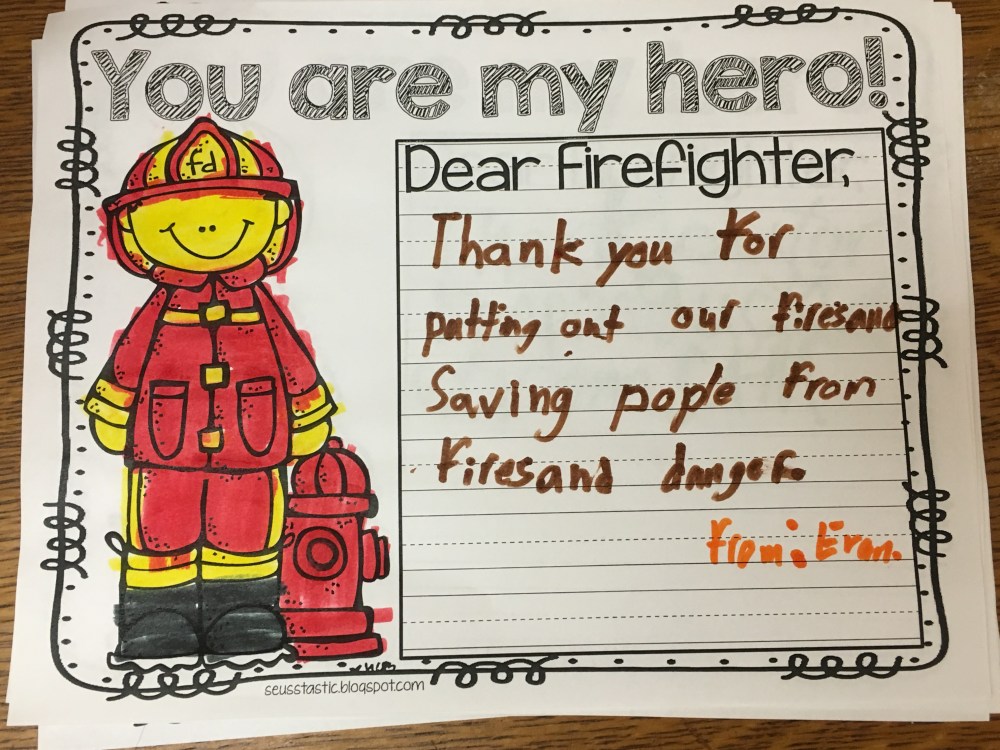 You are my hero!
fd
Dear Firefighter,
Thank you for
putting out our firesand
Saving pople from
firesand danger.
from: Evan.
seusstastic.blogspot.com